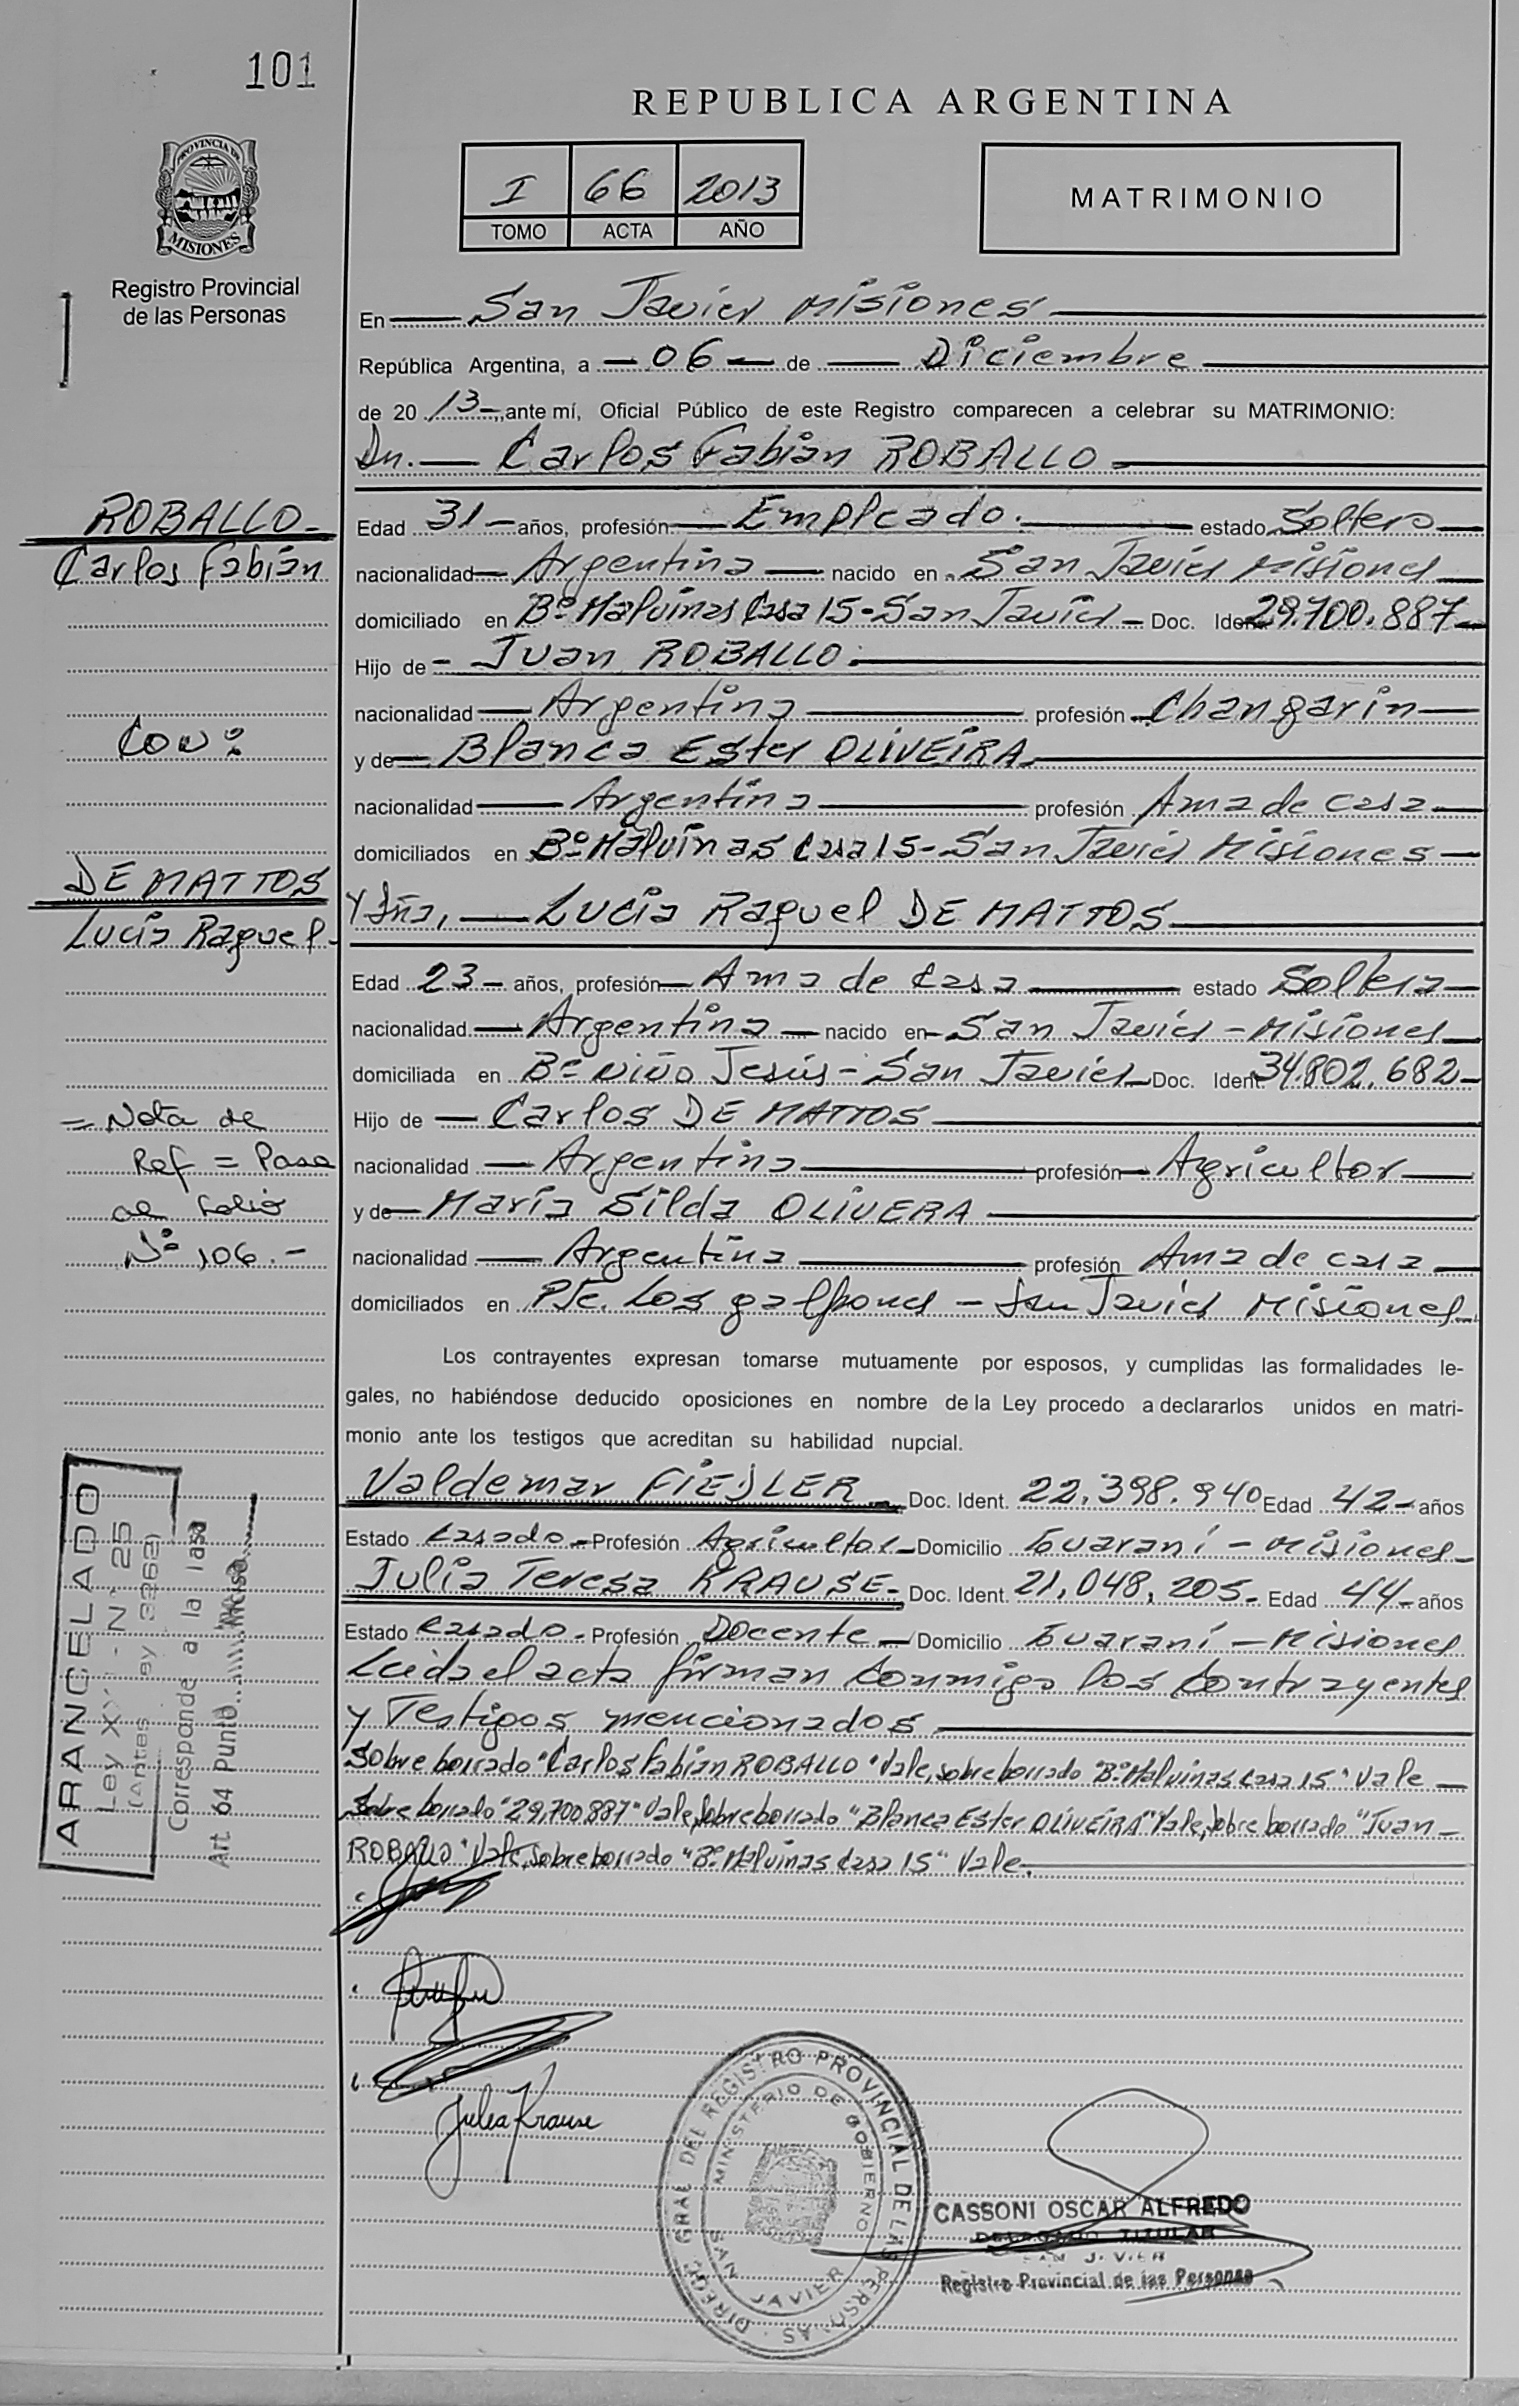 101
REPUBLICA ARGENTINA
PROVINCIA DE
MISIONES
Registro Provincial
de las Personas
I 66 2013
TOMO ACTA AÑO
MATRIMONIO
En San Javier Misiones
República Argentina, a 06 de Diciembre
de 20 13 ante mí, Oficial Público de este Registro comparecen a celebrar su MATRIMONIO:
Dn. Carlos Fabián ROBALLO
ROBALLO
Carlos Fabián
Edad 31 años, profesión Empleado. estado Soltero
nacionalidad Argentina nacido en San Javier Misiones
domiciliado en Bº Malvinas Casa 15 - San Javier Doc. Ident. 29.700.887
Hijo de Juan ROBALLO
nacionalidad Argentina profesión Changarin
Con:
y de Blanca Ester OLIVEIRA
nacionalidad Argentina profesión Ama de casa
domiciliados en Bº Malvinas Casa 15 - San Javier Misiones
DE MATTOS
Lucía Raquel
Y Dña, Lucía Raquel DE MATTOS
Edad 23 años, profesión Ama de Casa estado Soltera
nacionalidad Argentina nacido en San Javier - Misiones
domiciliada en Bº Niño Jesús - San Javier Doc. Ident. 34.802.682
Hijo de Carlos DE MATTOS
nacionalidad Argentina profesión Agricultor
y de María Silda OLIVERA
nacionalidad Argentina profesión Ama de casa
domiciliados en Pje. Los galpones - San Javier Misiones
= Nota de
Ref = Pasa
al Folio
Nº 106.-
Los contrayentes expresan tomarse mutuamente por esposos, y cumplidas las formalidades le-
gales, no habiéndose deducido oposiciones en nombre de la Ley procedo a declararlos unidos en matri-
monio ante los testigos que acreditan su habilidad nupcial.
Valdemar FIEDLER Doc. Ident. 22.398.940 Edad 42 años
Estado Casado Profesión Agricultor Domicilio Guaraní - Misiones
Julia Teresa KRAUSE Doc. Ident. 21.048.205 Edad 44 años
Estado Casado Profesión Docente Domicilio Guaraní - Misiones
Leida el acta firman conmigo los contrayentes
y Testigos mencionados
Sobre borrado "Carlos Fabian ROBALLO" Vale, sobre borrado "Bº Malvinas casa 15" Vale
Sobre borrado "29.700.887" Vale, sobre borrado "Blanca Ester OLIVEIRA" Vale, sobre borrado "Juan
ROBALLO" Vale, sobre borrado "Bº Malvinas Casa 15" Vale.
ARANCELADO
Ley XXI - Nº 25
(Antes Ley 3262)
Corresponde a la tasa
Art 64 Punto Inciso
Julia Krause
DIREC. GRAL DEL REGISTRO PROVINCIAL DE LAS PERSONAS
MINISTERIO DE GOBIERNO
SAN JAVIER
CASSONI OSCAR ALFREDO
DELEGADO TITULAR
SAN JAVIER
Registro Provincial de las Personas